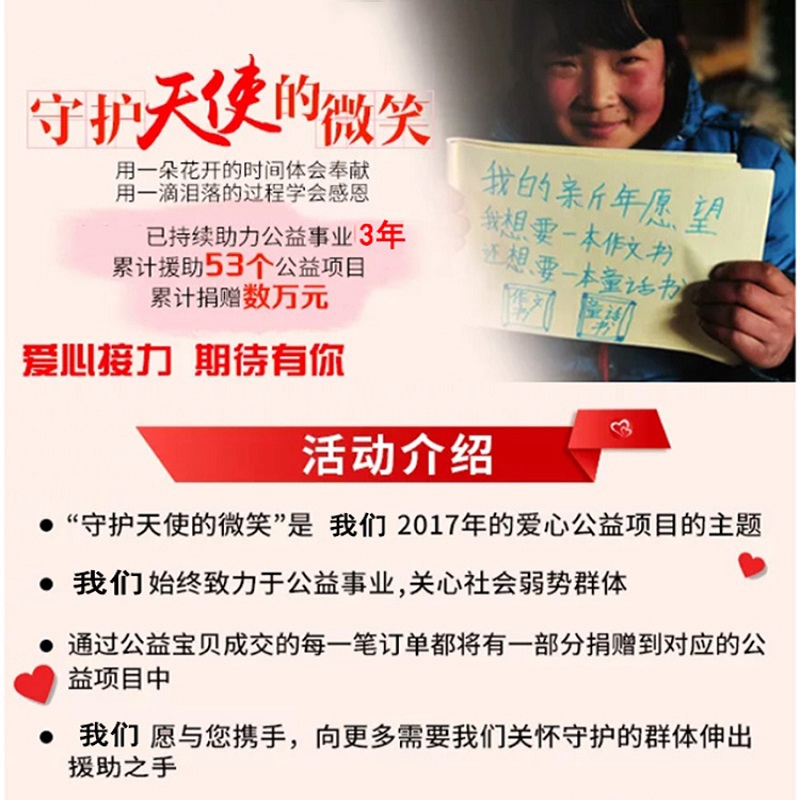 守护天使的微笑
用一朵花开的时间体会奉献
用一滴泪落的过程学会感恩
已持续助力公益事业3年
累计援助53个公益项目
累计捐赠数万元
爱心接力 期待有你
我的亲斤年愿望
我想要一本作文书
还想要一本童话书
作文书
童话书
活动介绍
“守护天使的微笑”是 我们 2017年的爱心公益项目的主题
我们始终致力于公益事业,关心社会弱势群体
通过公益宝贝成交的每一笔订单都将有一部分捐赠到对应的公
益项目中
我们 愿与您携手，向更多需要我们关怀守护的群体伸出
援助之手